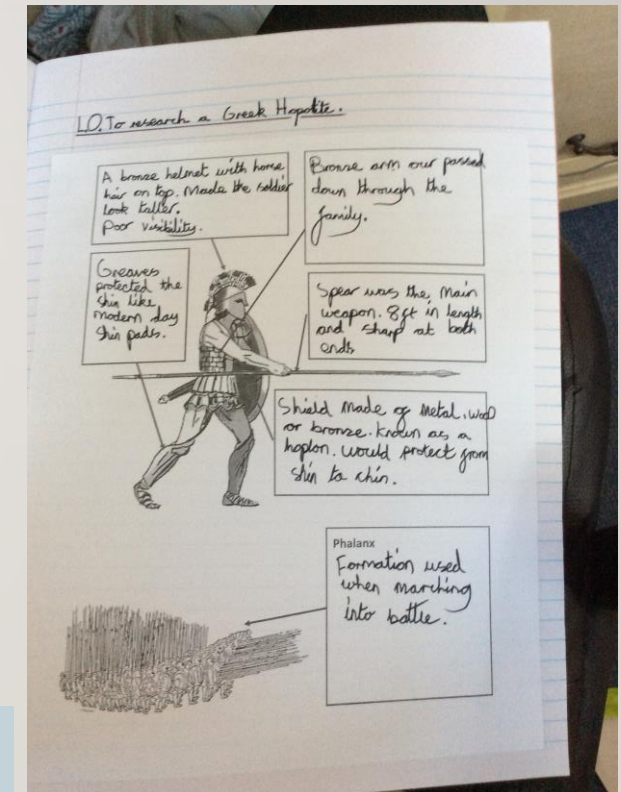 LO. To research a Greek Hopolite.
A bronze helmet with horse
hair on top. Made the soldier
look taller.
Poor visibility.
Bronze arm our passed
down through the
family.
Greaves
protected the
shin like
modern day
shin pads.
Spear was the main
weapon. 8ft in length
and sharp at both
ends
Shield made of metal, wood
or bronze. Known as a
hoplon. Would protect from
shin to chin.
Phalanx
Formation used
when marching
into battle.